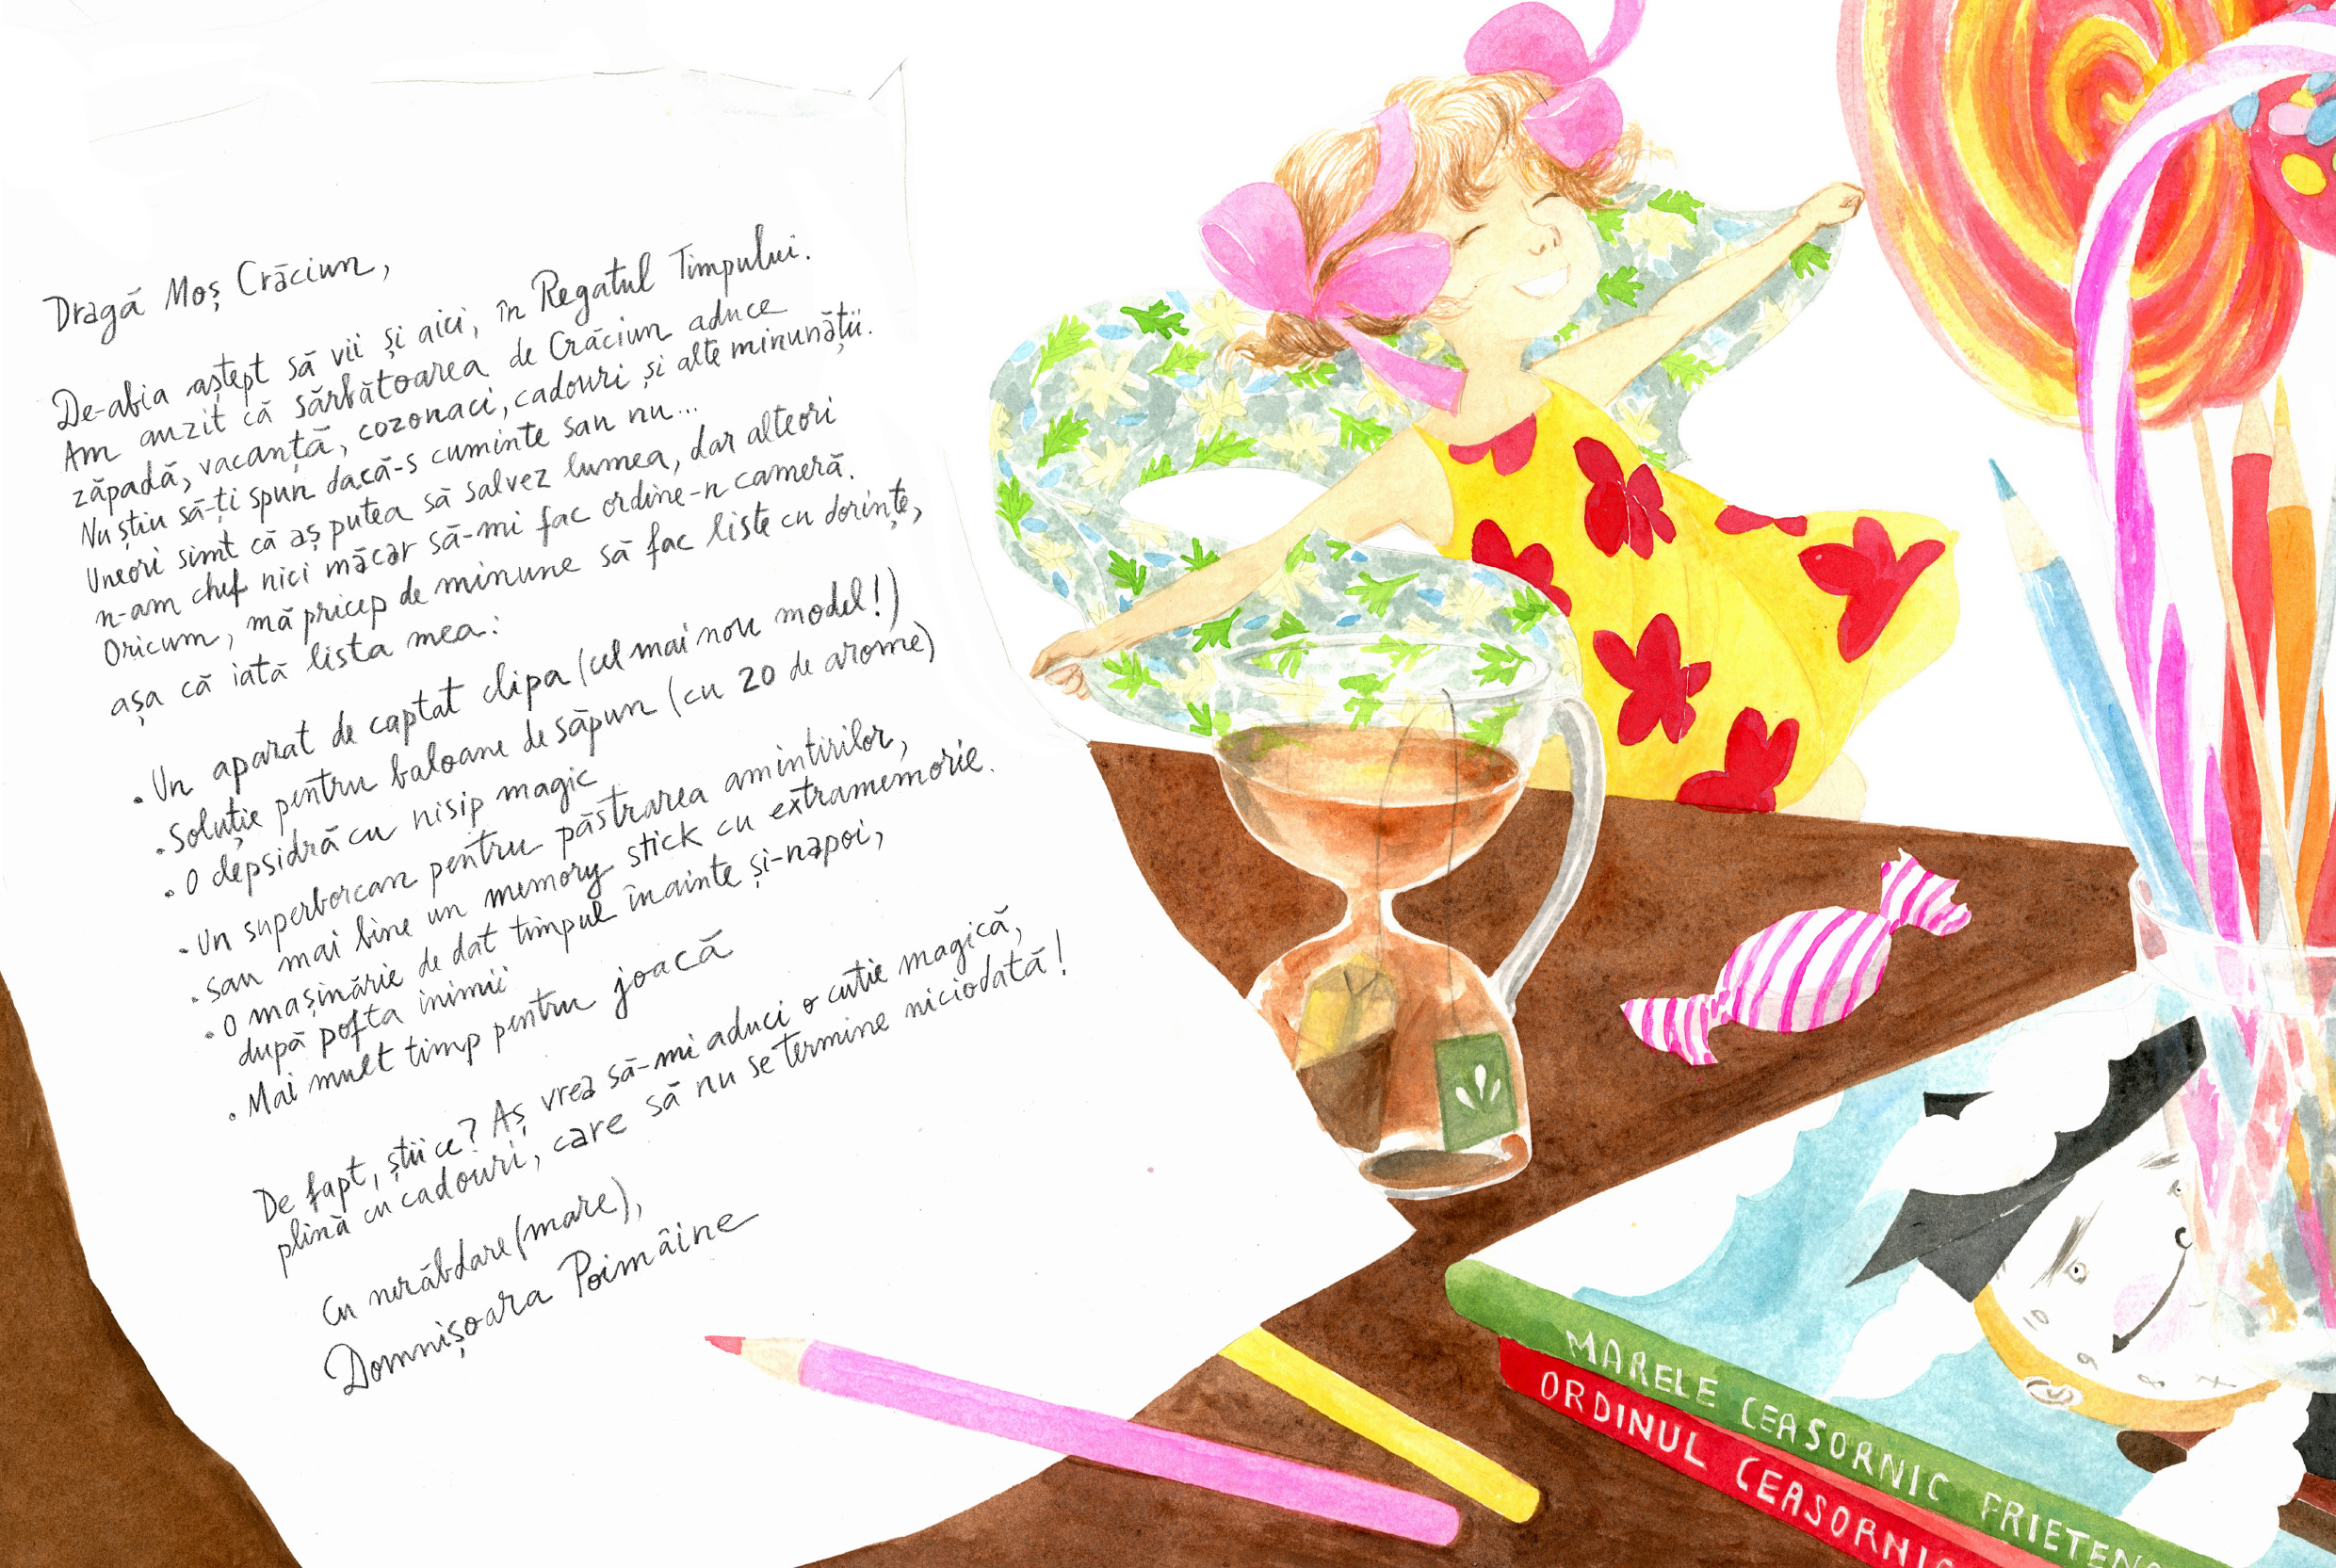 Dragă Moș Crăciun,
De-abia aștept să vii și aici, în Regatul Timpului.
Am auzit că sărbătoarea de Crăciun aduce
zăpadă, vacanță, cozonaci, cadouri și alte minunății.
Nu știu să-ți spun dacă-s cuminte sau nu...
Uneori simt că aș putea să salvez lumea, dar alteori
n-am chef nici măcar să-mi fac ordine-n cameră.
Oricum, mă pricep de minune să fac liste cu dorințe,
așa că iată lista mea:
• Un aparat de captat clipa (cel mai nou model!)
• Soluție pentru baloane de săpun (cu 20 de arome)
• O clepsidră cu nisip magic
• Un superborcan pentru păstrarea amintirilor,
• sau mai bine un memory stick cu extramemorie.
• O mașinărie de dat timpul înainte și-napoi,
după pofta inimii
• Mai mult timp pentru joacă
De fapt, știi ce? Aș vrea să-mi aduci o cutie magică,
plină cu cadouri, care să nu se termine niciodată!
Cu nerăbdare (mare),
Domnișoara Poimâine
MARELE CEASORNIC PRIETEN
ORDINUL CEASORNIC
10
9
8